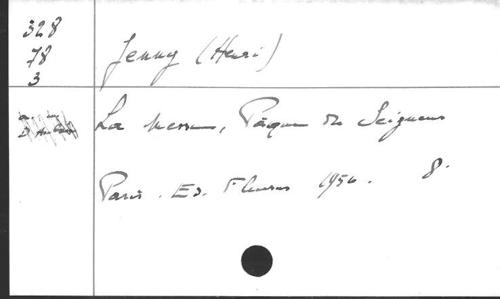 328
78
3
Jenny (Henri)
La Messe, Pâque du Seigneur
Paris. Ed. Fleurus 1956. 8.